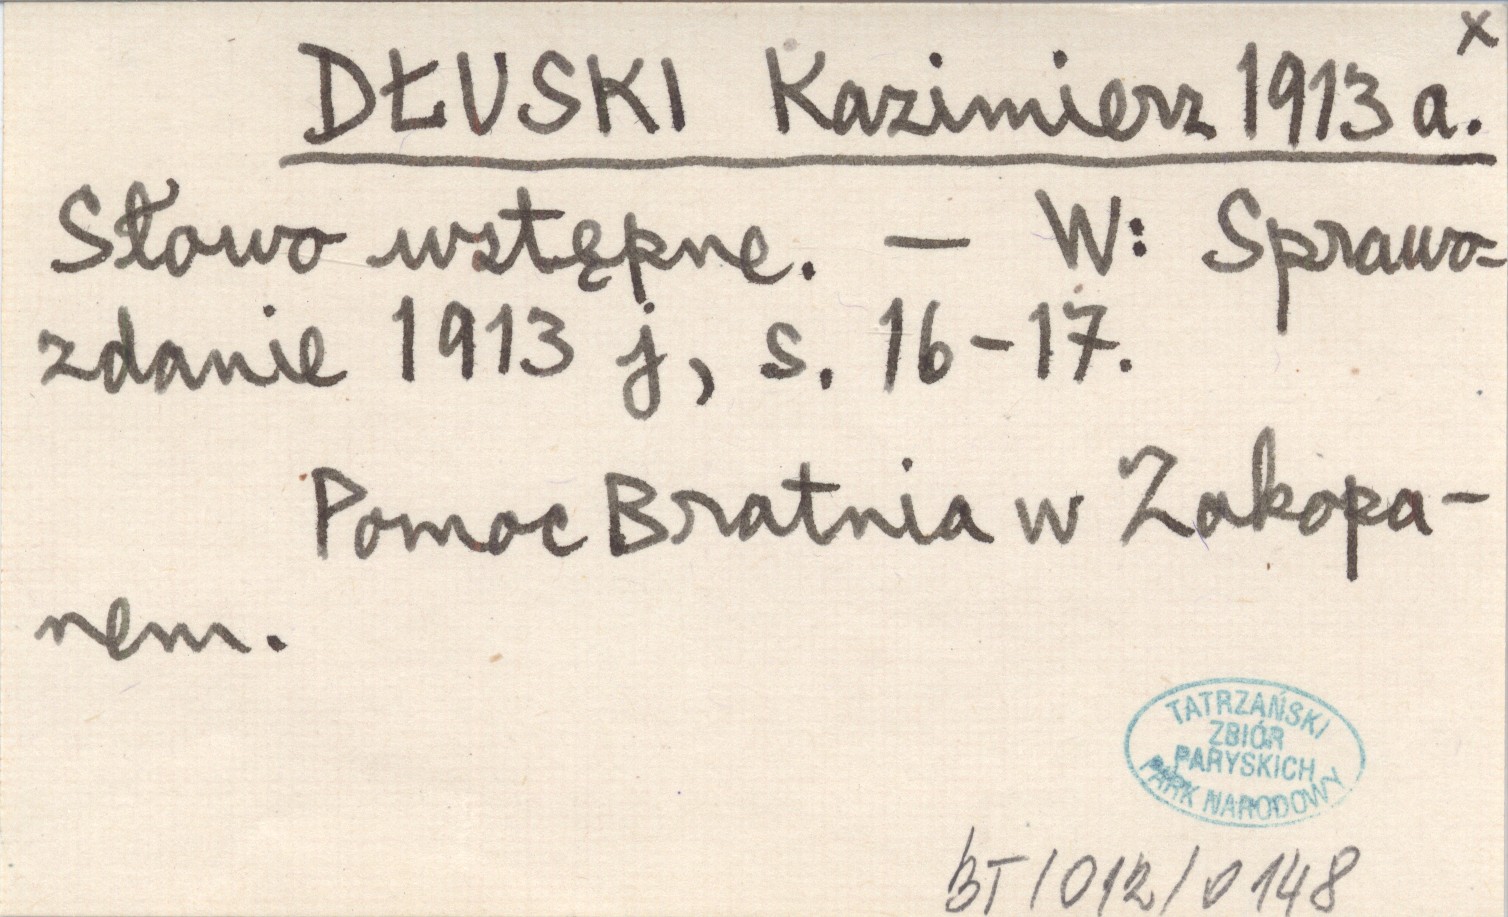 x
DŁUSKI Kazimierz 1913 a.
Słowo wstępne. — W: Sprawo=
zdanie 1913 j, s. 16-17.
Pomoc Bratnia w Zakopa-
nem.
TATRZAŃSKI
ZBIÓR
PARYSKICH
PARK NARODOWY
BT/012/0148